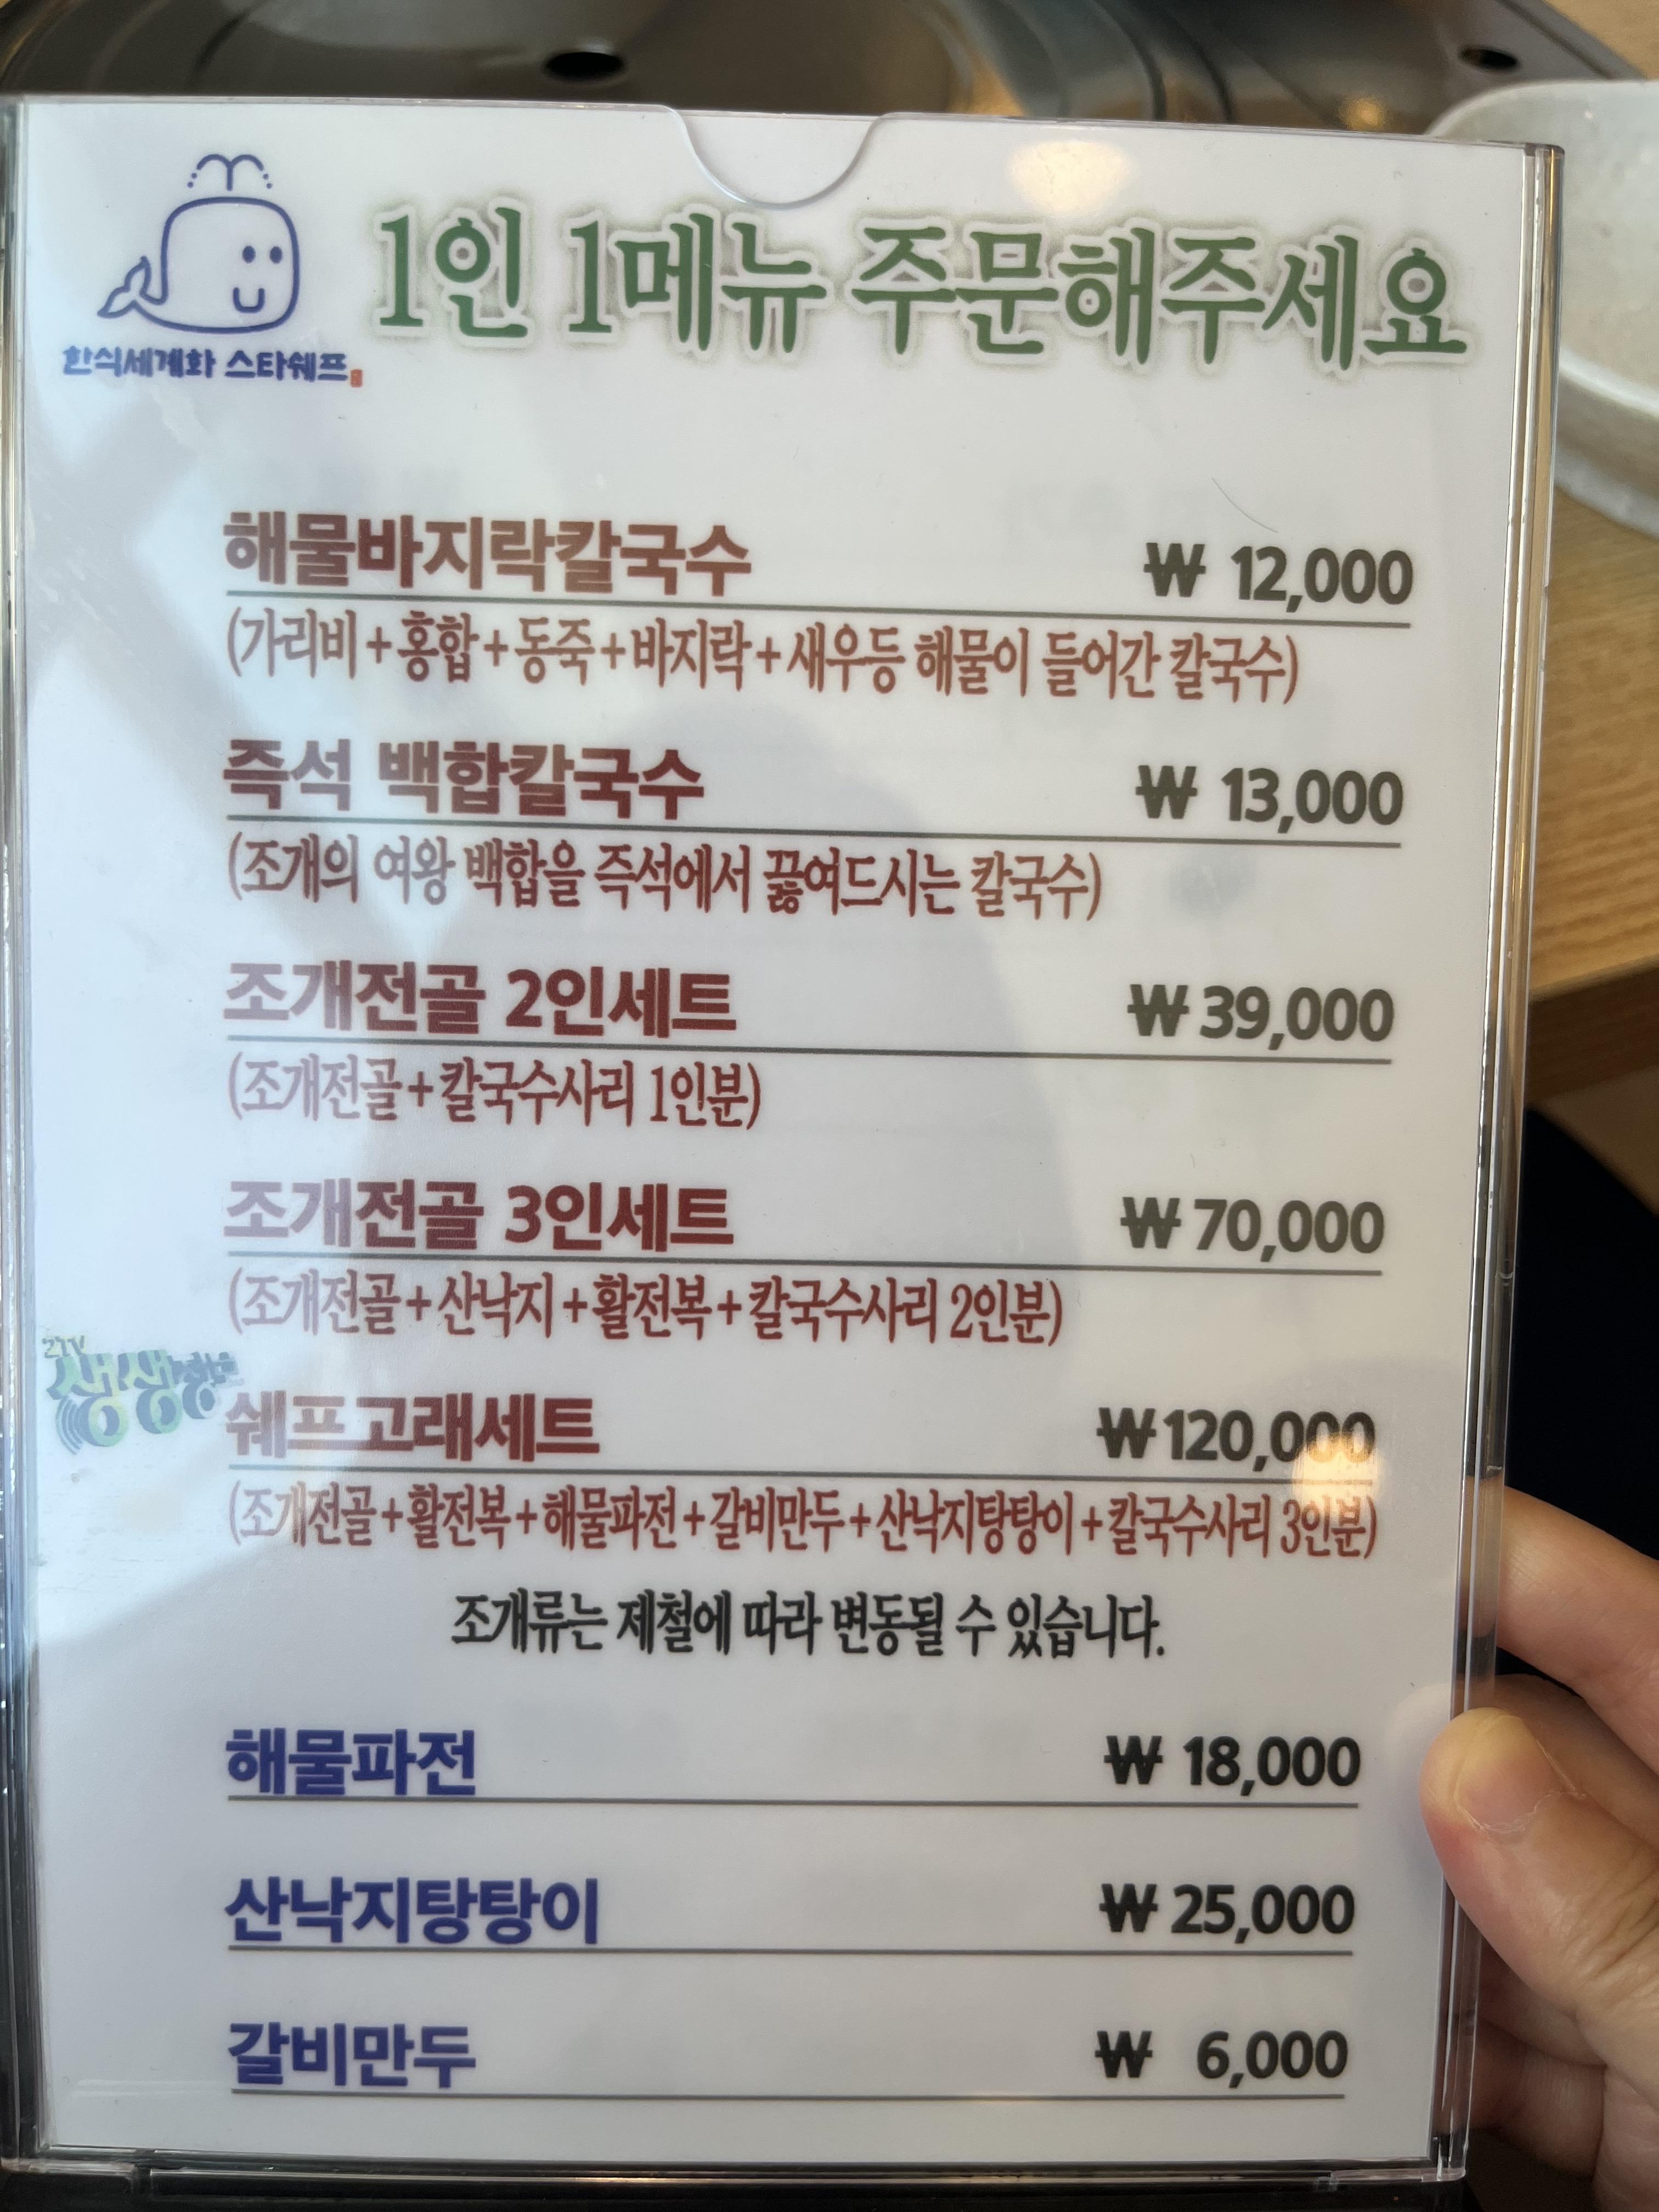 1인 1메뉴 주문해주세요
한식세계화 스타쉐프
해물바지락칼국수 ₩ 12,000
(가리비+홍합+동죽+바지락+새우등 해물이 들어간 칼국수)
즉석 백합칼국수 ₩ 13,000
(조개의 여왕 백합을 즉석에서 끓여드시는 칼국수)
조개전골 2인세트 ₩ 39,000
(조개전골+칼국수사리 1인분)
조개전골 3인세트 ₩ 70,000
(조개전골+산낙지+활전복+칼국수사리 2인분)
생생
쉐프고래세트 ₩120,000
(조개전골+활전복+해물파전+갈비만두+산낙지탕탕이+칼국수사리 3인분)
조개류는 제철에 따라 변동될 수 있습니다.
해물파전 ₩ 18,000
산낙지탕탕이 ₩ 25,000
갈비만두 ₩ 6,000